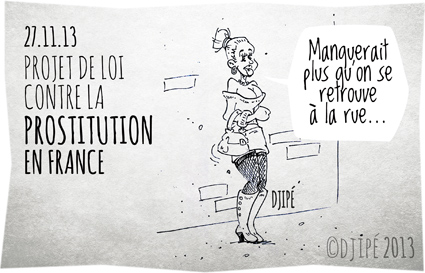 27.11.13
PROJET DE LOI
CONTRE LA
PROSTITUTION
EN FRANCE
Manquerait
plus qu'on se
retrouve
à la rue...
DJIPÉ
©DJIPÉ 2013